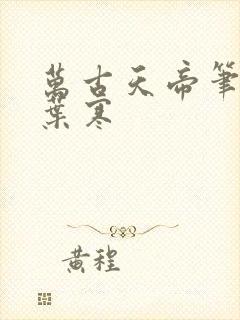 萬古天帝筆
葉寒
黃程